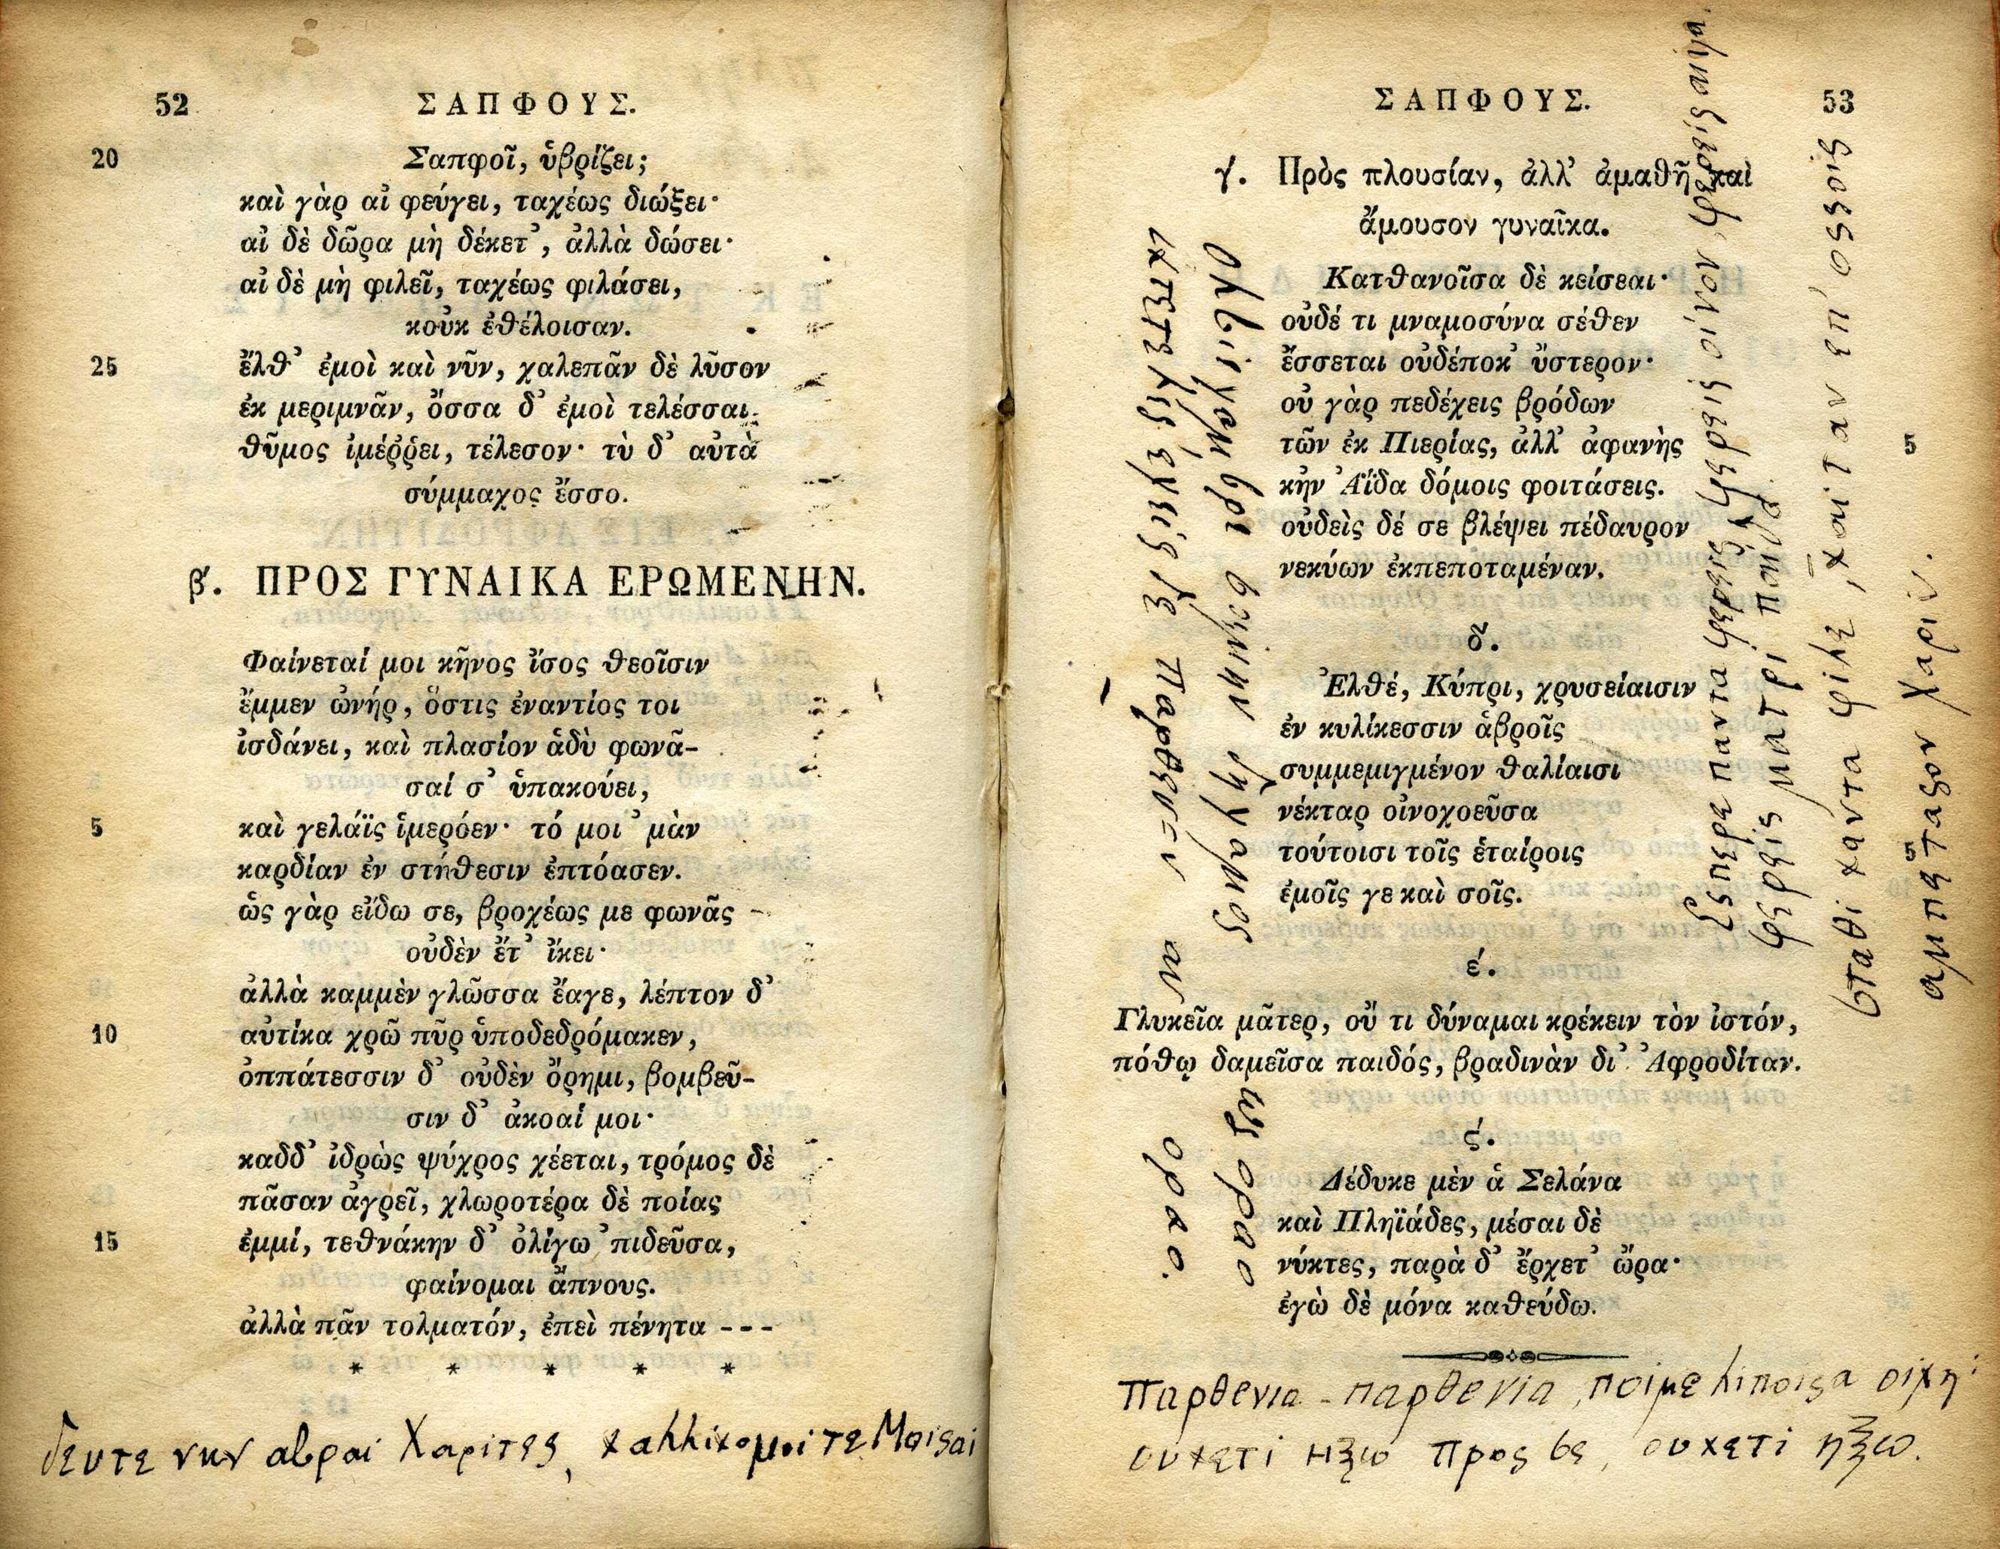 52
ΣΑΠΦΟΥΣ.
20 Σαπφοῖ, ὑβρίζει;
καὶ γὰρ αἰ φεύγει, ταχέως διώξει·
αἰ δὲ δῶρα μὴ δέκετ᾽, ἀλλὰ δώσει·
αἰ δὲ μὴ φιλεῖ, ταχέως φιλάσει,
κοὐκ ἐθέλοισαν.
25 ἔλθ᾽ ἐμοὶ καὶ νῦν, χαλεπᾶν δὲ λῦσον
ἐκ μεριμνᾶν, ὅσσα δ᾽ ἐμοὶ τελέσσαι
θῦμος ἰμέῤῥει, τέλεσον· τὺ δ᾽ αὐτὰ
σύμμαχος ἔσσο.
β΄. ΠΡΟΣ ΓΥΝΑΙΚΑ ΕΡΩΜΕΝΗΝ.
Φαίνεταί μοι κῆνος ἴσος θεοῖσιν
ἔμμεν ὠνήρ, ὅστις ἐναντίος τοι
ἰσδάνει, καὶ πλασίον ἁδὺ φωνᾶ-
σαί σ᾽ ὑπακούει,
5 καὶ γελάϊς ἱμερόεν· τό μοι ᾽μὰν
καρδίαν ἐν στήθεσιν ἐπτόασεν.
ὡς γὰρ εἴδω σε, βροχέως με φωνᾶς
οὐδὲν ἔτ᾽ ἵκει·
ἀλλὰ καμμὲν γλῶσσα ἔαγε, λέπτον δ᾽
10 αὐτίκα χρῶ πῦρ ὑποδεδρόμακεν,
ὀππάτεσσιν δ᾽ οὐδὲν ὄρημι, βομβεῦ-
σιν δ᾽ ἀκοαί μοι·
καδδ᾽ ἱδρὼς ψύχρος χέεται, τρόμος δὲ
πᾶσαν ἀγρεῖ, χλωροτέρα δὲ ποίας
15 ἐμμί, τεθνάκην δ᾽ ὀλίγω ᾽πιδεῦσα,
φαίνομαι ἄπνους.
ἀλλὰ πᾶν τολματόν, ἐπεὶ πένητα ---
* * * * *
δευτε νυν αβραι Χαριτες, καλλικομοι τε Μοισαι
ΣΑΠΦΟΥΣ.
53
γ΄. Πρὸς πλουσίαν, ἀλλ᾽ ἀμαθῆ καὶ
ἄμουσον γυναῖκα.
Κατθανοῖσα δὲ κείσεαι·
οὐδέ τι μναμοσύνα σέθεν
ἔσσεται οὐδέποκ᾽ ὕστερον·
οὐ γὰρ πεδέχεις βρόδων
τῶν ἐκ Πιερίας, ἀλλ᾽ ἀφανὴς 5
κἠν Ἀΐδα δόμοις φοιτάσεις.
οὐδεὶς δέ σε βλέψει πέδαυρον
νεκύων ἐκπεποταμέναν.
δ΄.
Ἐλθέ, Κύπρι, χρυσείαισιν
ἐν κυλίκεσσιν ἁβροῖς
συμμεμιγμένον θαλίαισι
νέκταρ οἰνοχοεῦσα
τούτοισι τοῖς ἑταίροις 5
ἐμοῖς γε καὶ σοῖς.
ε΄.
Γλυκεῖα μᾶτερ, οὔ τι δύναμαι κρέκειν τὸν ἱστόν,
πόθῳ δαμεῖσα παιδός, βραδινὰν δι᾽ Ἀφροδίταν.
ς΄.
Δέδυκε μὲν ἁ Σελάνα
καὶ Πληϊάδες, μέσαι δὲ
νύκτες, παρὰ δ᾽ ἔρχετ᾽ ὥρα·
ἐγὼ δὲ μόνα καθεύδω.
παρθενια - παρθενια, ποι με λιποισα οιχη;
ουκετι ηξω προς σε, ουκετι ηξω.
Ολβιε γαμβρε σοι μεν δη γαμος ως αραο
εκτετελεστ' εχεις δε παρθενον αν αραο.
Εσπερε παντα φερεις φερεις οινον, φερεις αιγα
φερεις ματρι παιδα
σταθι καντα φιλε, και ταν επ' οσσοις
αμπετασον χαριν.